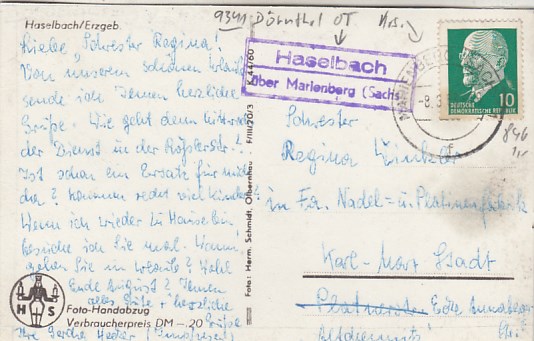 9341 Dörnthal OT
Haselbach/Erzgeb.
Haselbach
über Marienberg (Sachs
-8.3
DEUTSCHE
DEMOKRATISCHE REPUBLIK
10
Liebe Schwester Regina!
Von unserem schönen Urlaub
sende ich Ihnen herzliche
Grüße. Wie geht denn
der Dienst in der
Ist schon ein Ersatz für mich
da? Kommen recht viel Kinder?
Wenn ich wieder zu Hause bin,
besuche ich Sie mal. Wann
gehen Sie in Urlaub? Wohl
Ende August? Ihnen
alles Gute + herzliche
Grüße
Ihre
Schwester
Regina
in Fa. Nadel- u. Platinenfabrik
Karl-Marx-Stadt
Platnerstr. Ecke
Altchemnitz
Foto: Herm. Schmidt, Olbernhau
F/III/20/3
A 44/60
H S
Foto-Handabzug
Verbraucherpreis DM -.20